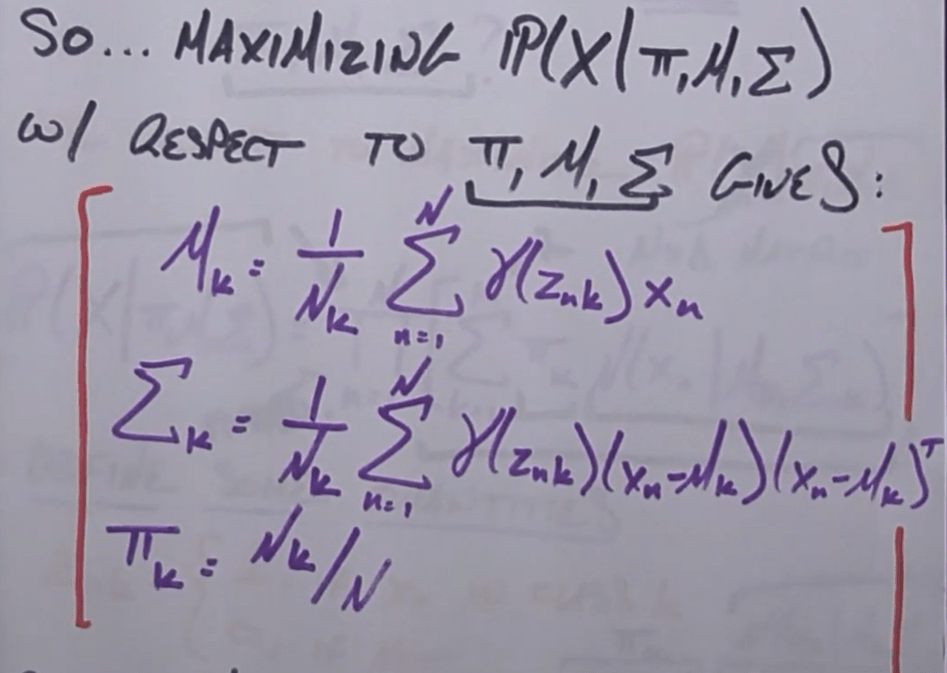 So... MAXIMIZING P(X|π,μ,Σ)
w/ RESPECT TO π,μ,Σ GIVES:
μ_k = 1/N_k Σ_{n=1}^{N} γ(z_{nk}) x_n
Σ_k = 1/N_k Σ_{n=1}^{N} γ(z_{nk})(x_n-μ_k)(x_n-μ_k)^T
π_k = N_k/N